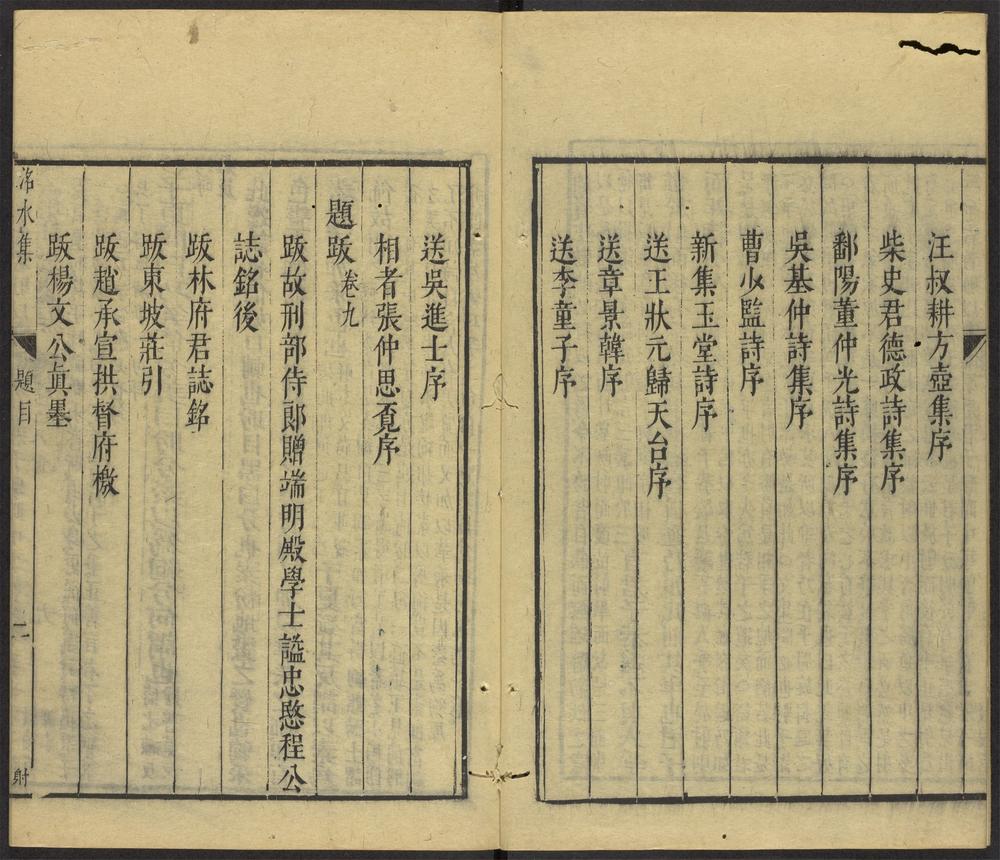 汪叔耕方壺集序
柴史君德政詩集序
鄱陽董仲光詩集序
吳基仲詩集序
曹少監詩序
新集玉堂詩序
送王狀元歸天台序
送章景韓序
送李童子序
送吳進士序
相者張仲思覔序
題䟦 卷九
䟦故刑部侍郎贈端明殿學士謚忠愍程公
誌銘後
䟦林府君誌銘
䟦東坡莊引
䟦趙承宣拱督府檄
䟦楊文公眞墨
洺水集 題目 二 射